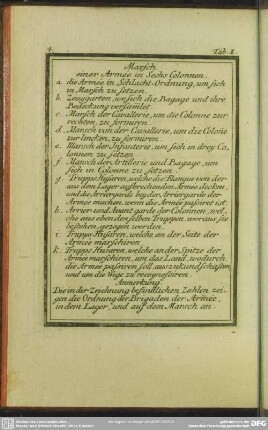 4.
Tab. I.
Marsch
einer Armée in Sechs Colonnen.
a. die Armée in Schlacht-Ordnung, um sich
in Marsch zu setzen.
b. Zeuggarten, wo sich die Bagage und ihre
Bedeckung versamlet.
c. Marsch der Cavallerie, um die Colonne zur
rechten, zu formiren.
d. Marsch von der Cavallerie, um die Colonne
zur lincken, zu formiren.
e. Marsch der Infanterie, um sich in drey Co,
lonnen zu setzen.
f. Marsch der Artillerie und Bagage, um
sich in Colonne zu setzen.
g. Trupps Husaren, welche die Flanque von der
aus dem Lager aufbrechenden Armée decken
und die Arriergarde bey der Arriergarde der
Armée machen, wenn die Armée passiret ist.
h. Arrier und Avant garde der Colonnen, wel,
che aus eben denselben Truppen, woraus sie
bestehen, gezogen werden.
i. Trupps Husaren, welche an der Seite der
Armée marschiren.
k. Trupps Husaren, welche an der Spitze der
Armée marschiren, um das Land, wodurch
die Armee passiren soll auszukundschaften,
und um die Wege zu recognosciren.
Anmerkung.
Die in der Zeichnung befindlichen Zahlen zei,
gen die Ordnung der Brigaden der Armée,
in dem Lager, und auf dem Marsch an.
SLUB
DFG